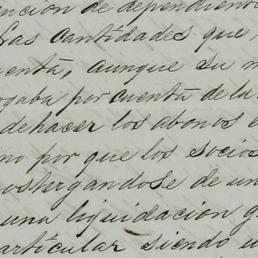 ención de dependient
Las cantidades que
uenta, aunque su m
ogaba por cuenta de la
dehacer los abonos e
no por que los socios
ostergandose de un
una liquidacion g
articular siendo u